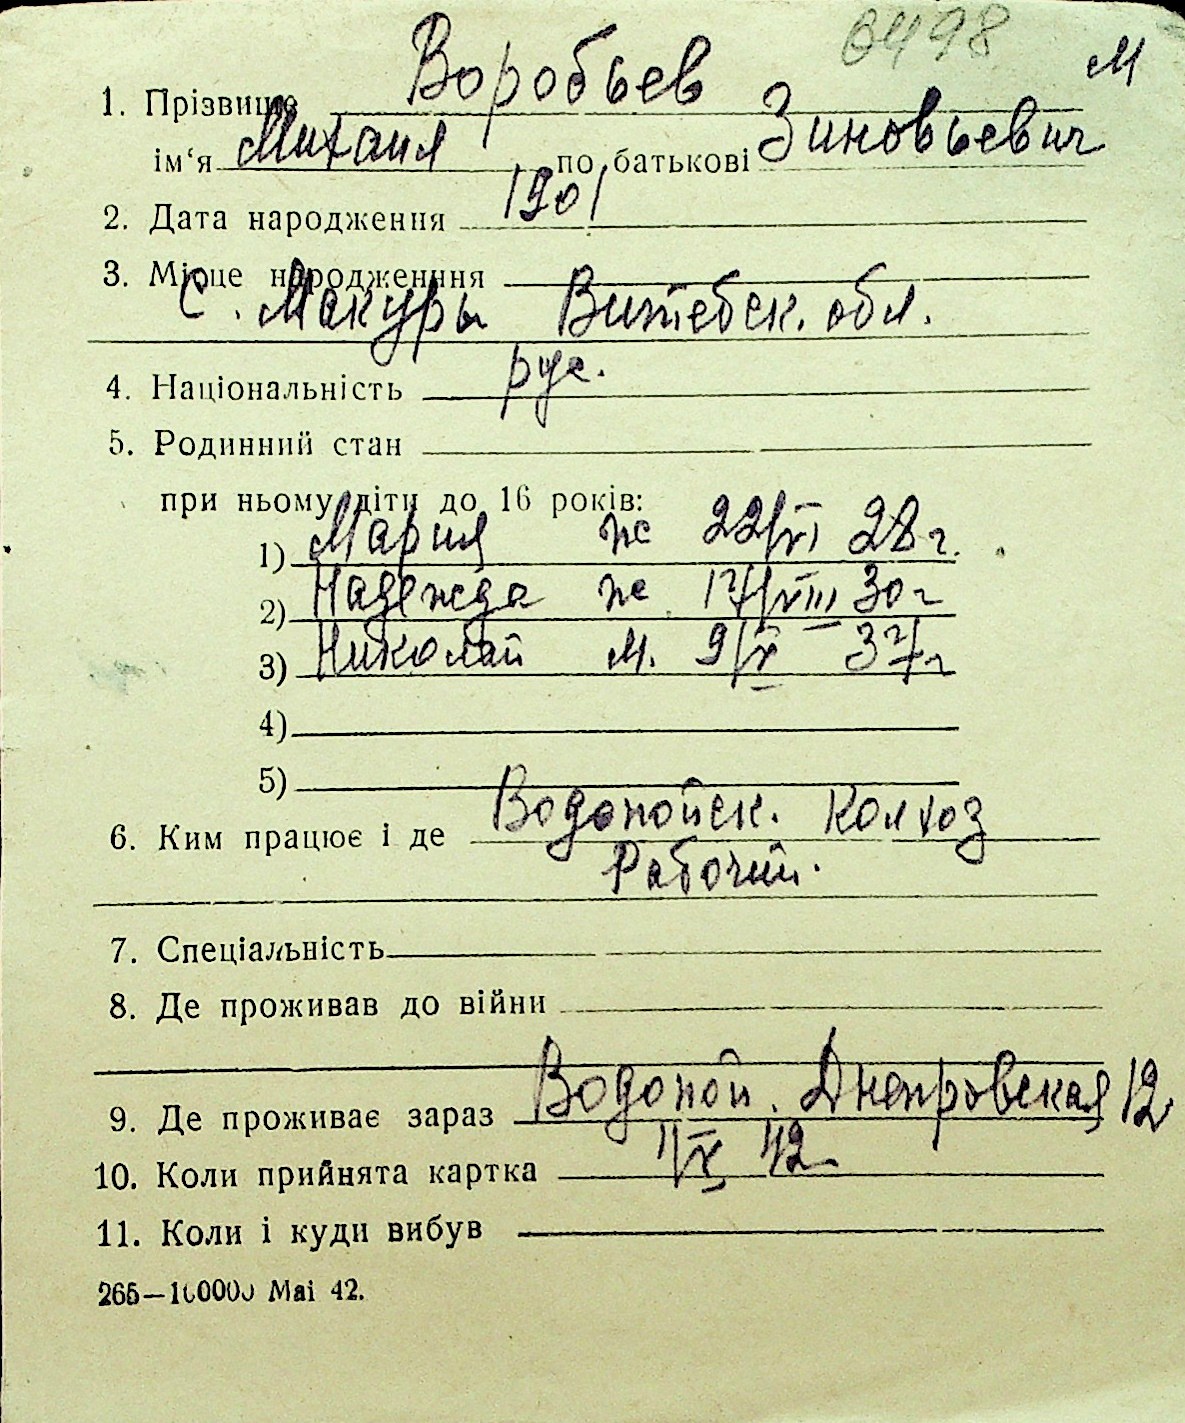 0498
м
1. Прізвище Воробьев
ім‘я Михаил по батькові Зиновьевич
2. Дата народження 1901
3. Місце народженння
с. Макуры Витебск. обл.
4. Національність рус.
5. Родинний стан
при ньому діти до 16 років:
1) Мария ж 22/VI 28 г.
2) Надежда ж 17/VIII 30 г
3) Николай м. 9/V 37 г
4)
5)
6. Ким працює і де Водопойск. колхоз
Рабочий.
7. Спеціальність
8. Де проживав до війни
9. Де проживає зараз Водопой. Днепровская 12
10. Коли прийнята картка 42
11. Коли і куди вибув
265—100000 Mai 42.